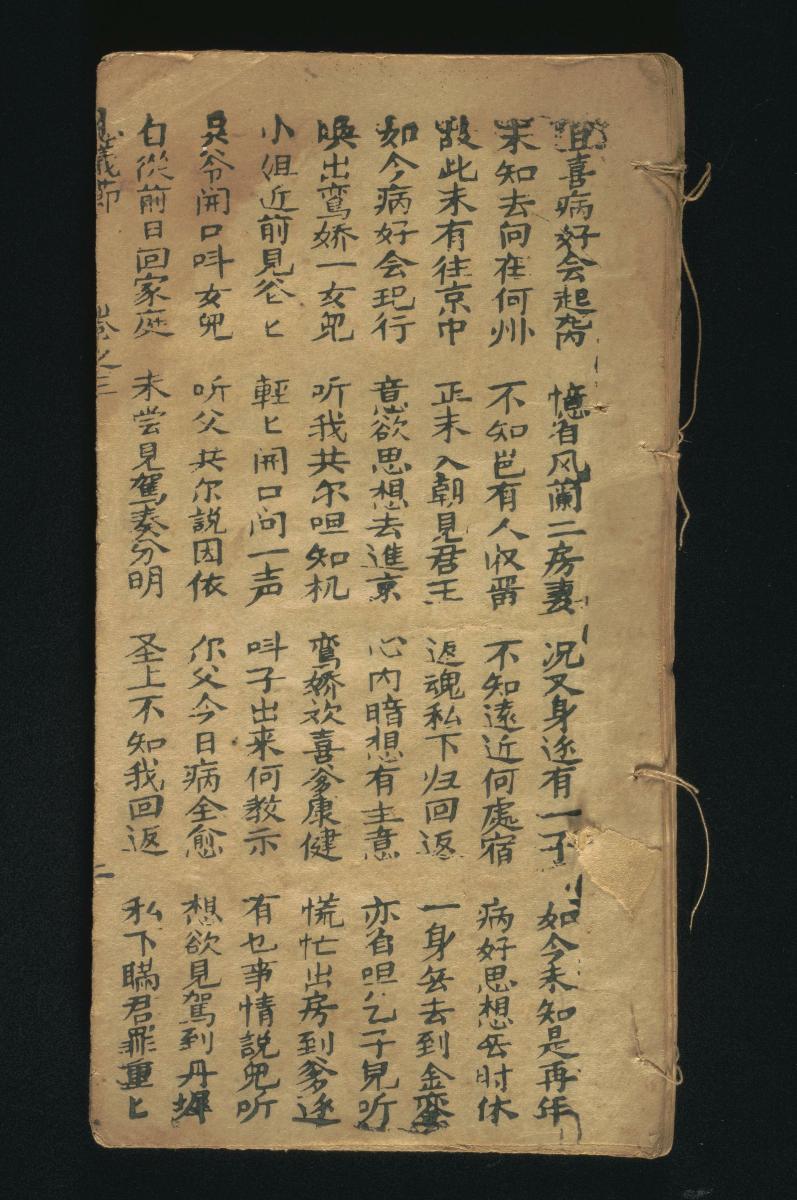 且喜病好会起　憶着风蘭二房妻　况又身边有一子　如今未知是再年
未知去向在何州　不知岂有人收畱　不知遠近何處宿　病好思想無时休
故此未有往京中　正未入朝見君王　返魂私下归回返　一身無去到金
如今病好会起行　意欲思想去進京　心内暗想有主意　亦着呾乞子兒听
喚出鸾娇一女兒　听我共尔呾知机　鸾娇欢喜爹康健　慌忙出房到爹边
小姐近前見爹匕　輕匕開口问一声　呌子出来何教示　有乜事情説兒听
吳爷開口呌女兒　听父共尔説因依　尔父今日病全愈　想欲見駕到丹墀
自從前日回家庭　未尝見駕奏分明　圣上不知我回返　私下瞞君罪重匕
義節　卷之三　二